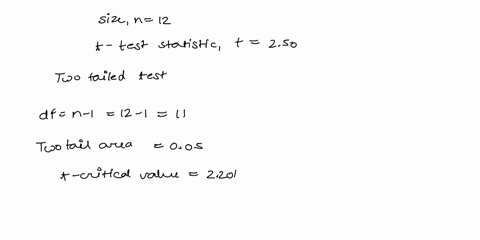 size, n = 12
t - test statistic, t = 2.50
Two tailed test
df = n-1 = 12-1 = 11
Two tail area = 0.05
t-critical value = 2.201